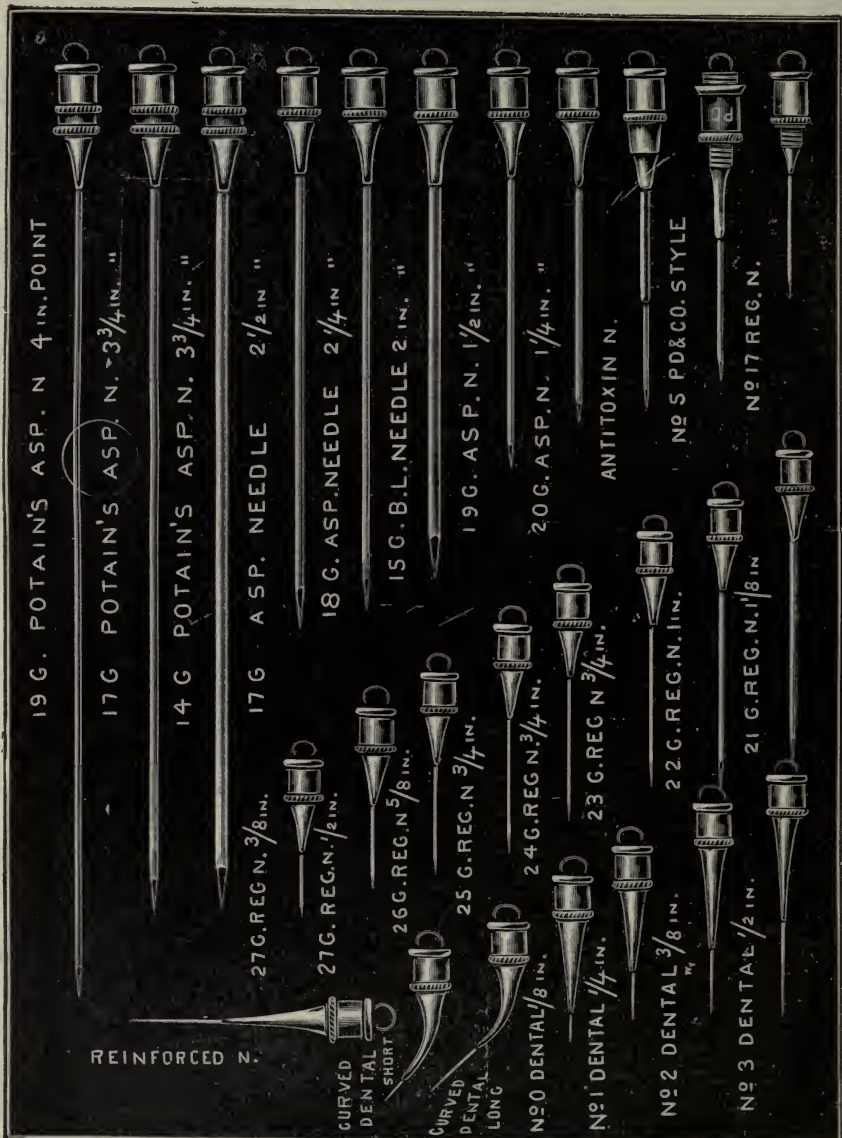 19 G. POTAIN'S ASP. N 4 IN. POINT
17 G POTAIN'S ASP. N. 3 3/4 IN. "
14 G POTAIN'S ASP. N. 3 3/4 IN. "
17 G ASP. NEEDLE 2 1/2 IN "
18 G. ASP. NEEDLE 2 1/4 IN "
15 G. B.L. NEEDLE 2 IN. "
19 G. ASP. N. 1 1/2 IN. "
20 G. ASP. N. 1 1/4 IN. "
ANTITOXIN N.
Nº 5 PD&CO. STYLE
PD
Nº 17 REG. N.
27 G. REG N. 3/8 IN.
27 G. REG. N. 1/2 IN.
26 G. REG. N 5/8 IN.
25 G. REG. N 3/4 IN.
24 G. REG N. 3/4 IN.
23 G. REG N 3/4 IN.
22 G. REG. N. 1 IN.
21 G. REG. N. 1 1/8 IN
REINFORCED N.
CURVED
DENTAL
SHORT
CURVED
DENTAL
LONG
Nº 0 DENTAL 1/8 IN.
Nº 1 DENTAL 1/4 IN.
Nº 2 DENTAL 3/8 IN.
Nº 3 DENTAL 1/2 IN.